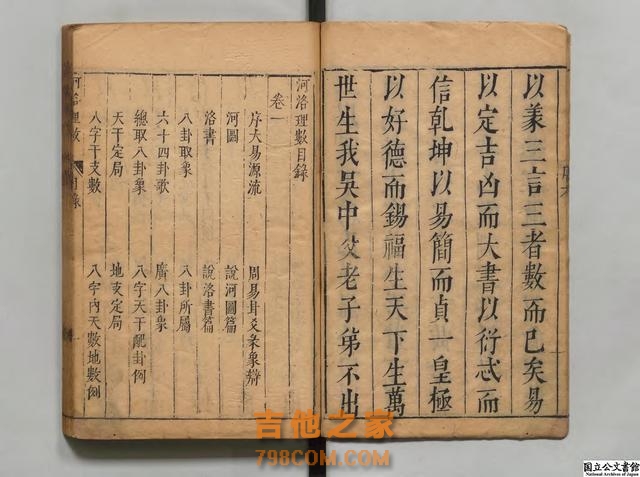 以彖三言三者數而已矣易
以定吉凶而大書以衍忒而
信乾坤以易簡而貞一皇極
以好德而錫福生天下生萬
世生我吳中父老子弟不出
河洛理數目錄
卷一
序大易源流 周易卦爻彖象辯
河圖 說河圖篇
洛書 說洛書篇
八卦取象 八卦所屬
六十四卦歌 廣八卦象
總取八卦象 八字天干配卦例
天干定局 地支定局
八字干支數 八字內天數地數例
河洛理數 目錄
吉他之家
798COM.COM
国立公文書館
National Archives of Japan